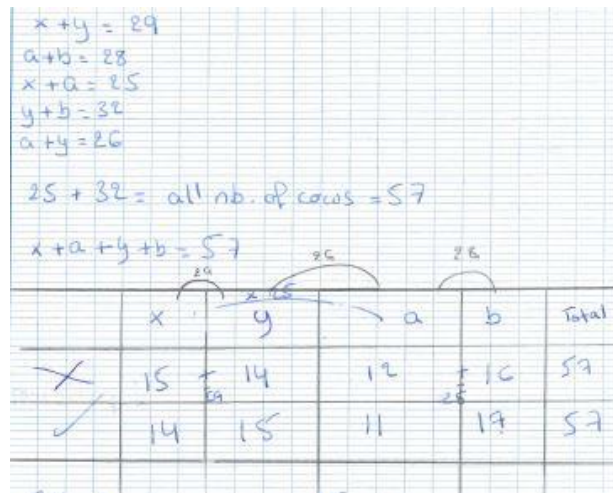 x + y = 29
a + b = 28
x + a = 25
y + b = 32
a + y = 26
25 + 32 = all nb. of cows = 57
x + a + y + b = 57
29 26 28
x 25
x y a b Total
X 15 + 14 12 + 16 57
29 28
✓ 14 15 11 17 57